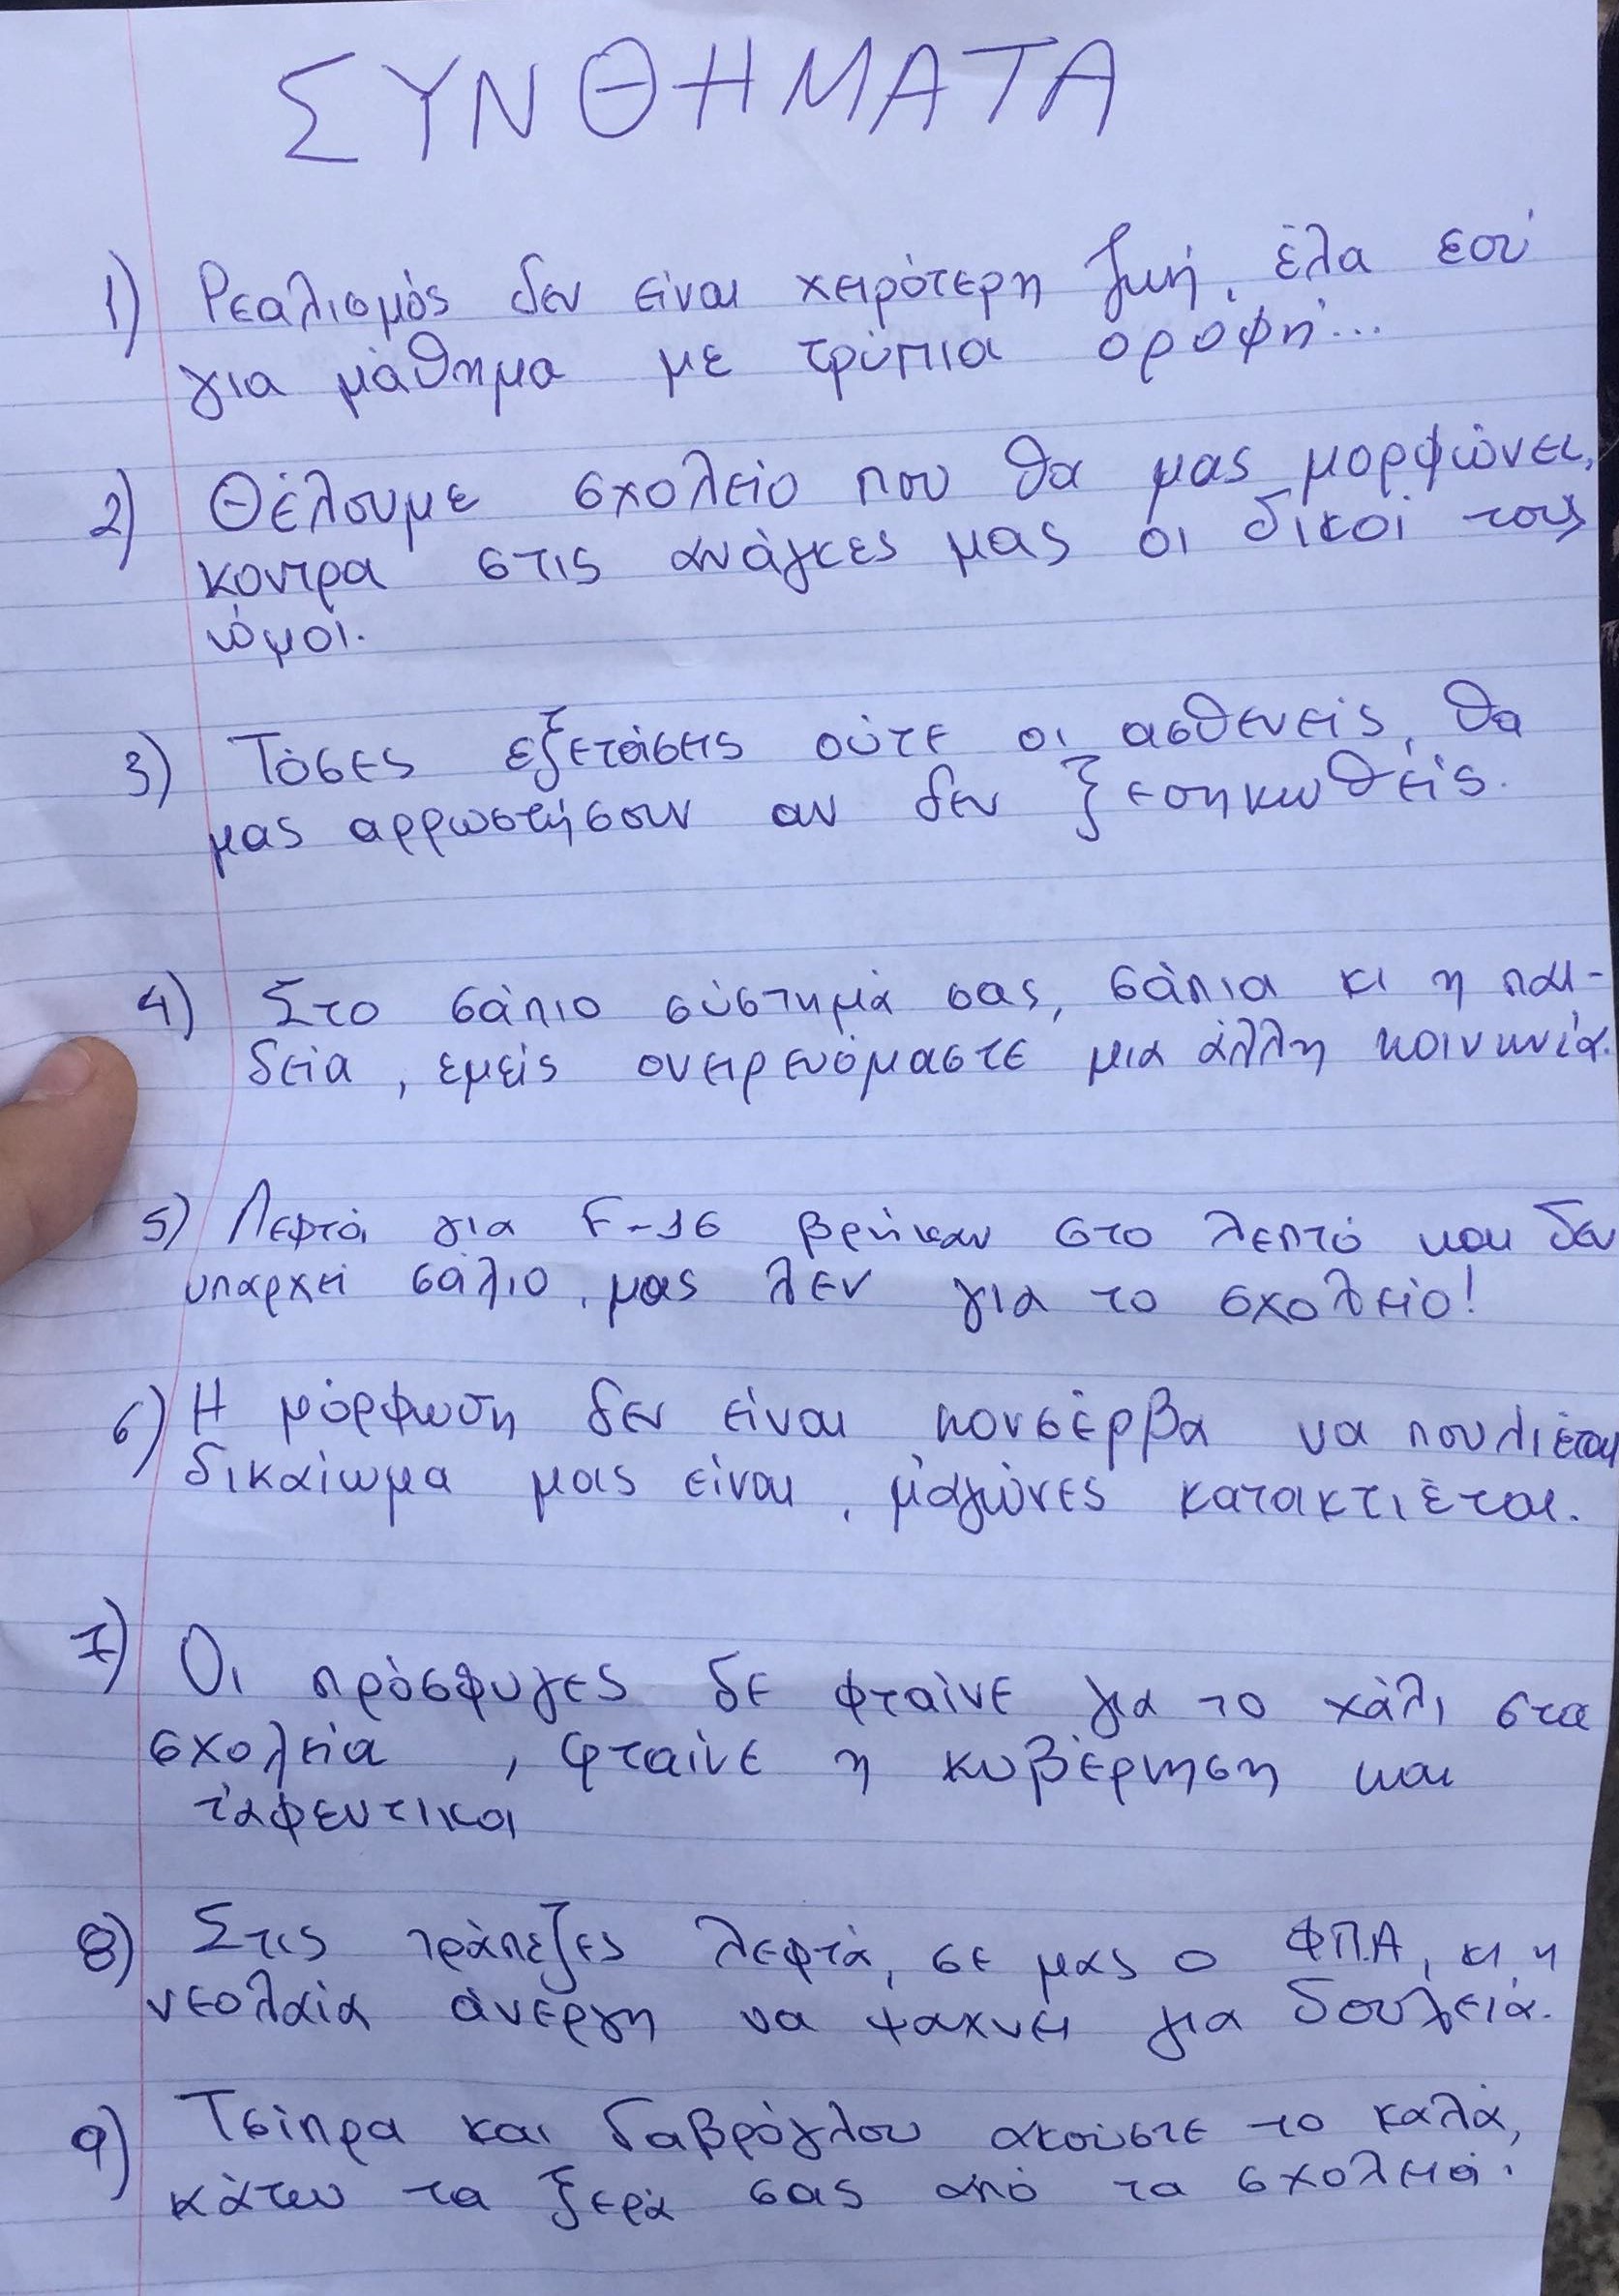 ΣΥΝΘΗΜΑΤΑ
1) Ρεαλισμός δεν είναι χειρότερη ζωή, έλα εσύ
για μάθημα με τρύπια οροφή...
2) Θέλουμε σχολείο που θα μας μορφώνει,
κοντρα στις ανάγκες μας οι δικοί τους
νόμοι.
3) Τόσες εξετάσεις ούτε οι ασθενείς, θα
μας αρρωστήσουν αν δεν ξεσηκωθείς.
4) Στο σάπιο σύστημά σας, σάπια κι η παι-
δεία, εμείς ονειρευόμαστε μια άλλη κοινωνία.
5) Λεφτά για F-16 βρήκαν στο λεπτό και δεν
υπαρχει σάλιο, μας λεν για το σχολείο!
6) Η μόρφωση δεν είναι κονσέρβα να πουλιέται
δικαίωμα μας είναι, μ'αγώνες κατακτιέται.
7) Οι πρόσφυγες δε φταίνε για το χάλι στα
σχολεία, φταίνε η κυβέρνηση και
τ'αφεντικα
8) Στις τράπεζες λεφτά, σε μας ο ΦΠΑ, κι η
νεολαία άνεργη να ψαχνει για δουλειά.
9) Τσίπρα και Γαβρόγλου ακούστε το καλά,
κάτω τα ξερά σας από τα σχολειά.